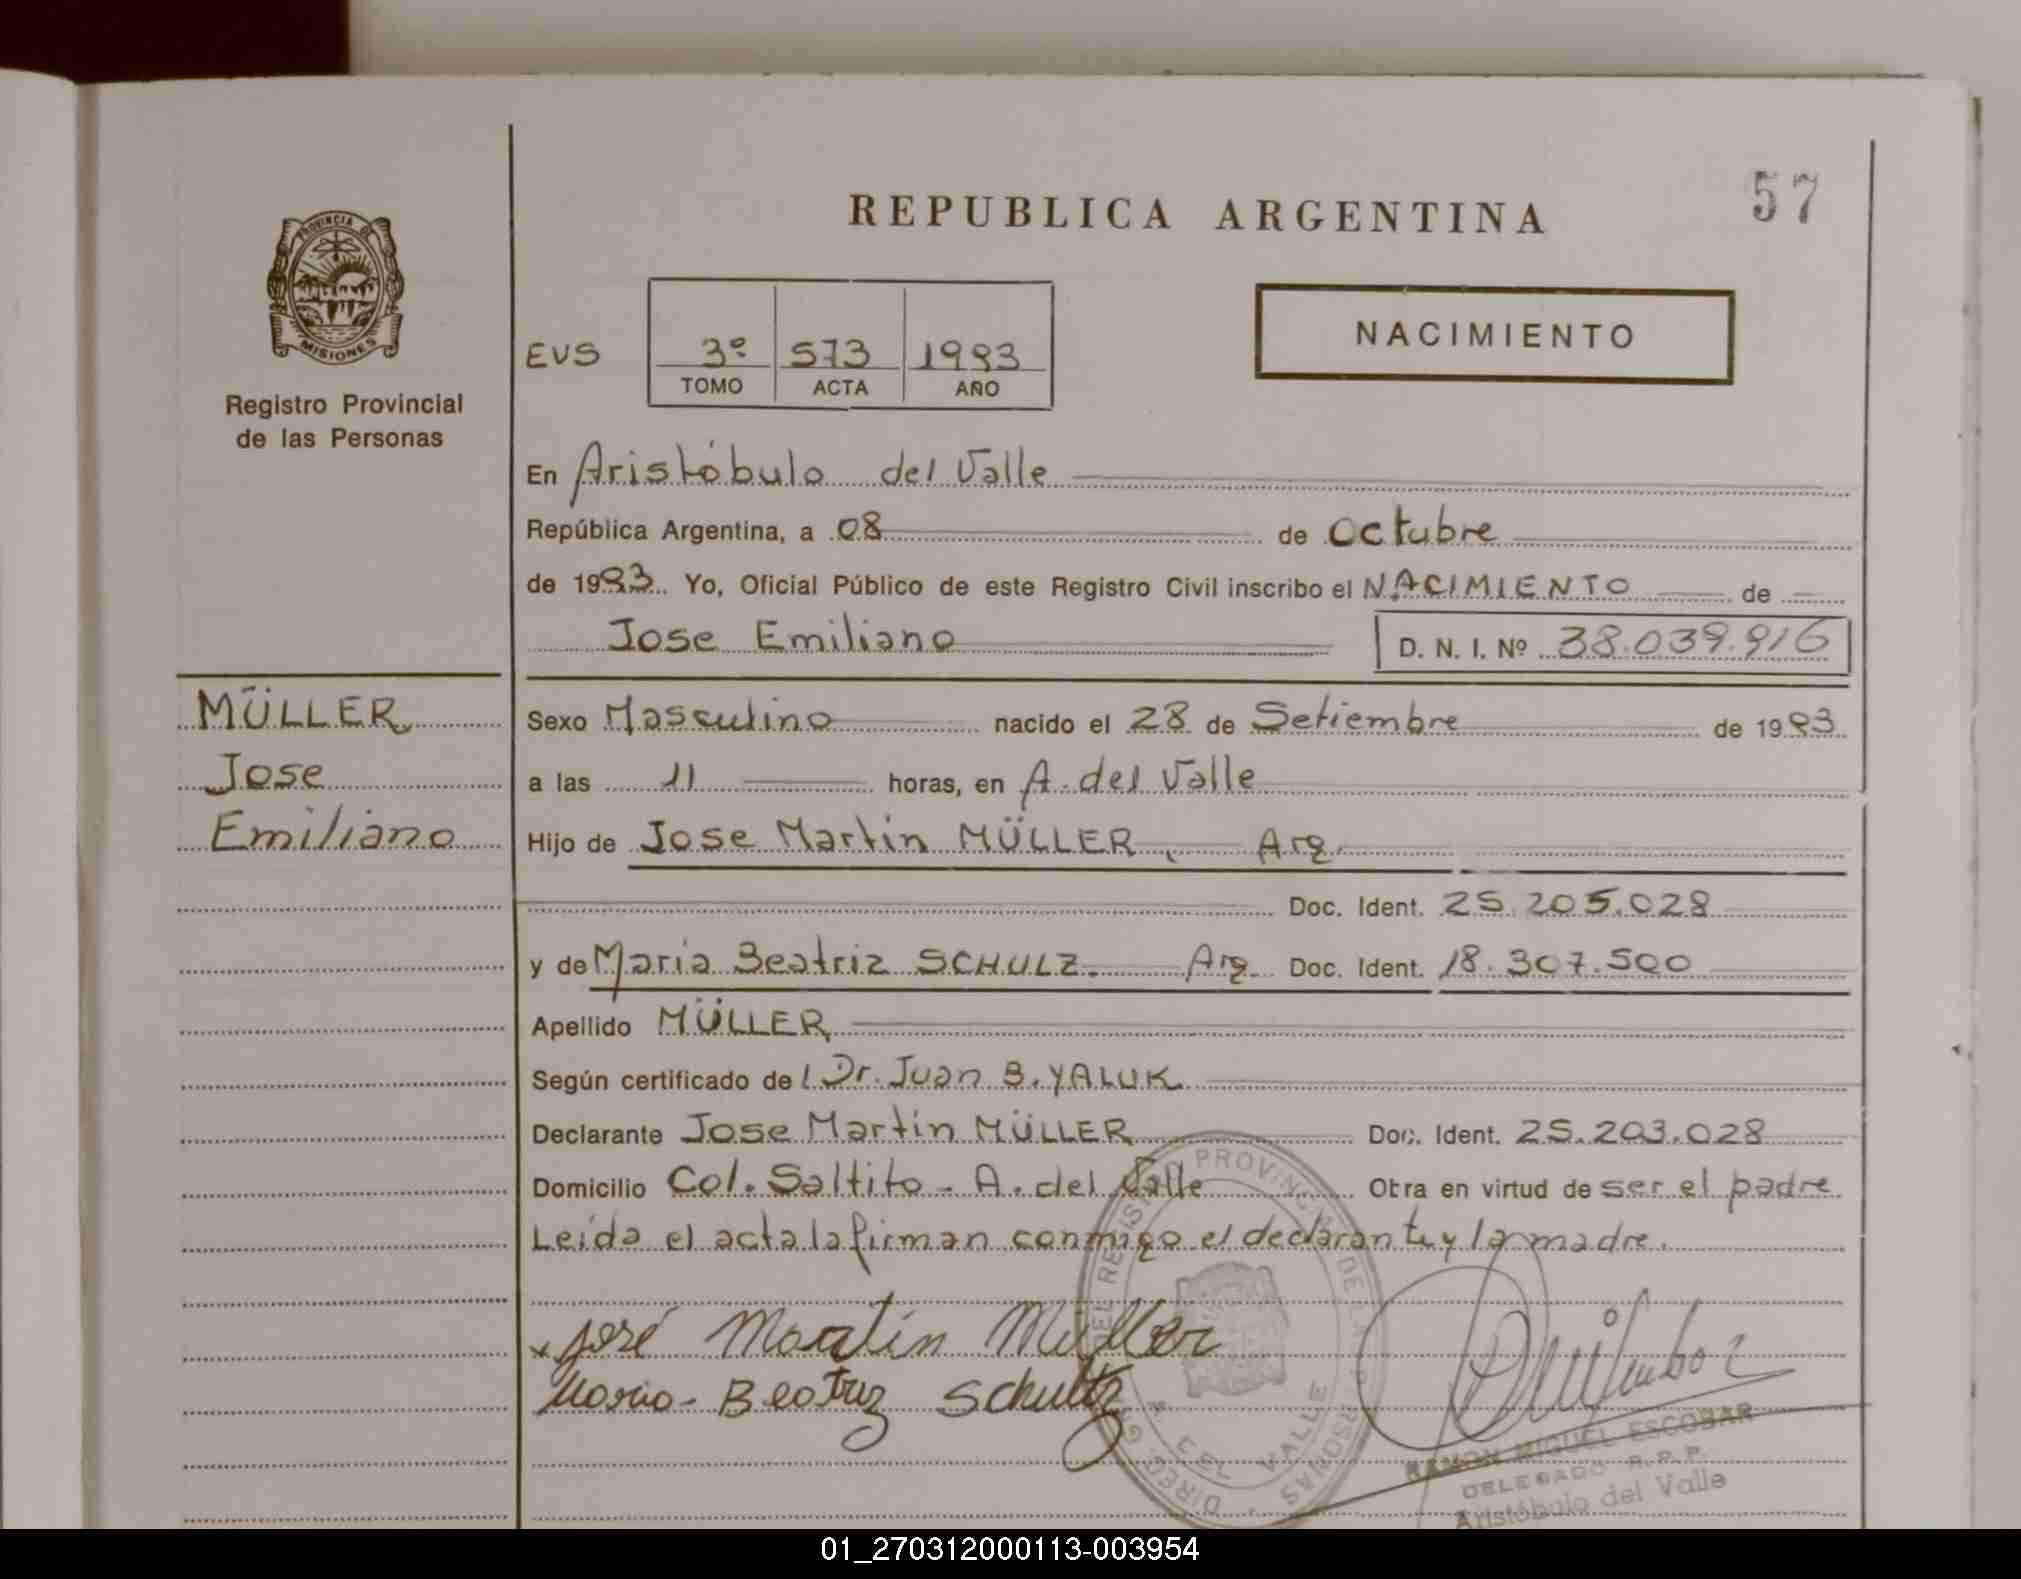 REPUBLICA ARGENTINA
57
PROVINCIA DE
MISIONES
Registro Provincial
de las Personas
NACIMIENTO
EVS
3º 573 1993
TOMO ACTA AÑO
En Aristóbulo del Valle
República Argentina, a 08 de Octubre
de 1993 Yo, Oficial Público de este Registro Civil inscribo el NACIMIENTO de
Jose Emiliano D. N. I. Nº 38.039.916
MÜLLER
Jose
Emiliano
Sexo Masculino nacido el 28 de Setiembre de 1993
a las 11 horas, en A. del Valle
Hijo de Jose Martin MÜLLER, Arg.
Doc. Ident. 25.205.028
y de Maria Beatriz SCHULZ. Arg. Doc. Ident. 18.307.500
Apellido MÜLLER
Según certificado de l Dr. Juan B. YALUK
Declarante Jose Martin MÜLLER Doc. Ident. 25.203.028
Domicilio Col. Saltito - A. del Valle Otra en virtud de ser el padre
Leída el acta la firman conmigo el declarante y la madre.
x José Martín Müller
Maria - Beatriz Schultz
A. DEL VALLE
RAMON MIGUEL ESCOBAR
DELEGADO R. P. P.
Aristóbulo del Valle
01_270312000113-003954